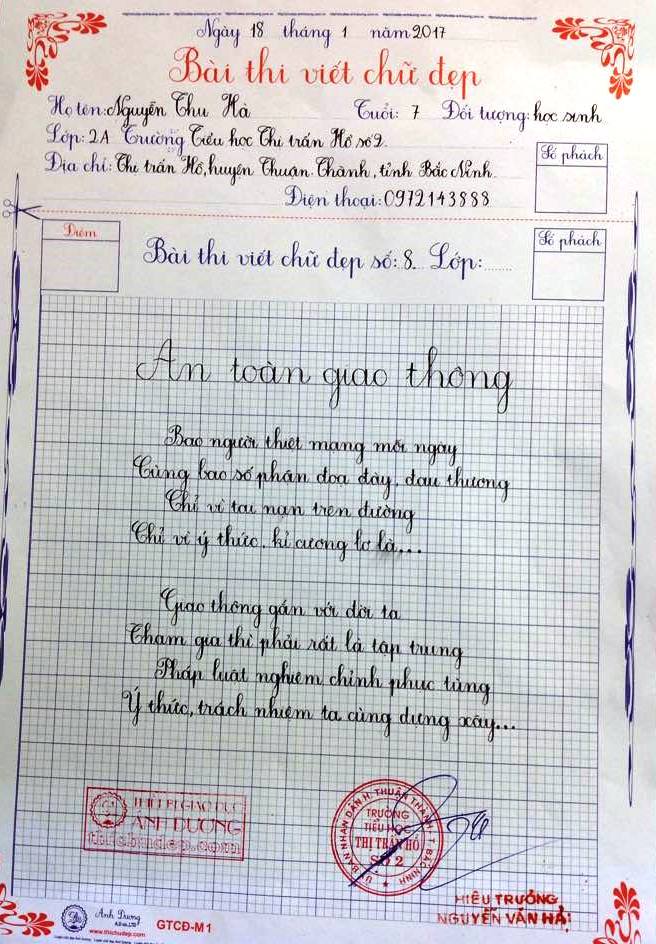 Ngày 18 tháng 1 năm 2017
Bài thi viết chữ đẹp
Họ tên: Nguyễn Thu Hà Tuổi: 7 Đối tượng: học sinh
Lớp: 2A Trường Tiểu học Thị trấn Hồ số 2.
Địa chỉ: Thị trấn Hồ, huyện Thuận Thành, tỉnh Bắc Ninh.
Số phách
Điện thoại: 0972143888
Điểm
Bài thi viết chữ đẹp số: 8 Lớp:......
Số phách
An toàn giao thông
Bao người thiệt mạng mỗi ngày
Cùng bao số phận đọa đày, đau thương
Chỉ vì tai nạn trên đường
Chỉ vì ý thức, kỉ cương lơ là...
Giao thông gắn với đời ta
Tham gia thì phải rất là tập trung
Pháp luật nghiêm chỉnh phục tùng
Ý thức, trách nhiệm ta cùng dựng xây...
THIẾT BỊ GIÁO DỤC
ÁNH DƯƠNG
thichudep.com
ỦY BAN NHÂN DÂN H. THUẬN THÀNH T. BẮC NINH
TRƯỜNG
TIỂU HỌC
THỊ TRẤN HỒ
SỐ 2
HIỆU TRƯỞNG
NGUYỄN VĂN HẢI
Anh Duong
www.thichudep.com
GTCĐ-M1